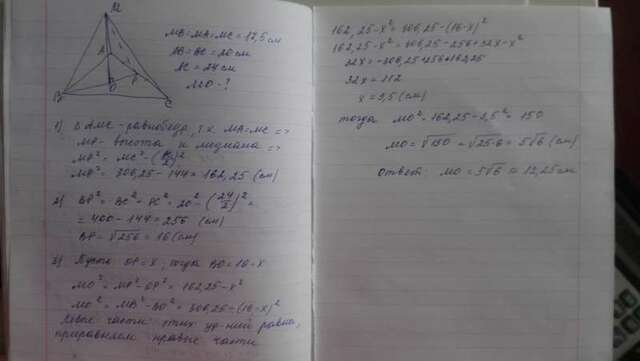 M
A
B
O
P
C
MB=MA=MC=17,5см
AB=BC=20см
AC=24см
MO-?
1) Δ AMC-равнобедр, т.к MA=MC =>
MP- высота и медиана =>
MP²= MC²-(AC/2)²
MP²= 306,25-144=162,25 (см)
2) BP²= BC²-PC²= 20²-(24/2)²=
= 400-144=256 (см)
BP=√256=16(см)
3) Пусть OP=x, тогда BO=16-x
MO²=MP²-OP²= 162,25-x²
MO²= MB²-BO²= 306,25-(16-x)²
Левые части этих ур-ний равны,
приравняем правые части
162,25-x²=306,25-(16-x)²
162,25-x²=306,25-256+32x-x²
32x=-306,25+256+162,25
32x=112
x=3,5(см)
тогда MO²=162,25-3,5²=150
MO=√150=√25·6=5√6(см)
Ответ: MO=5√6≈12,25см